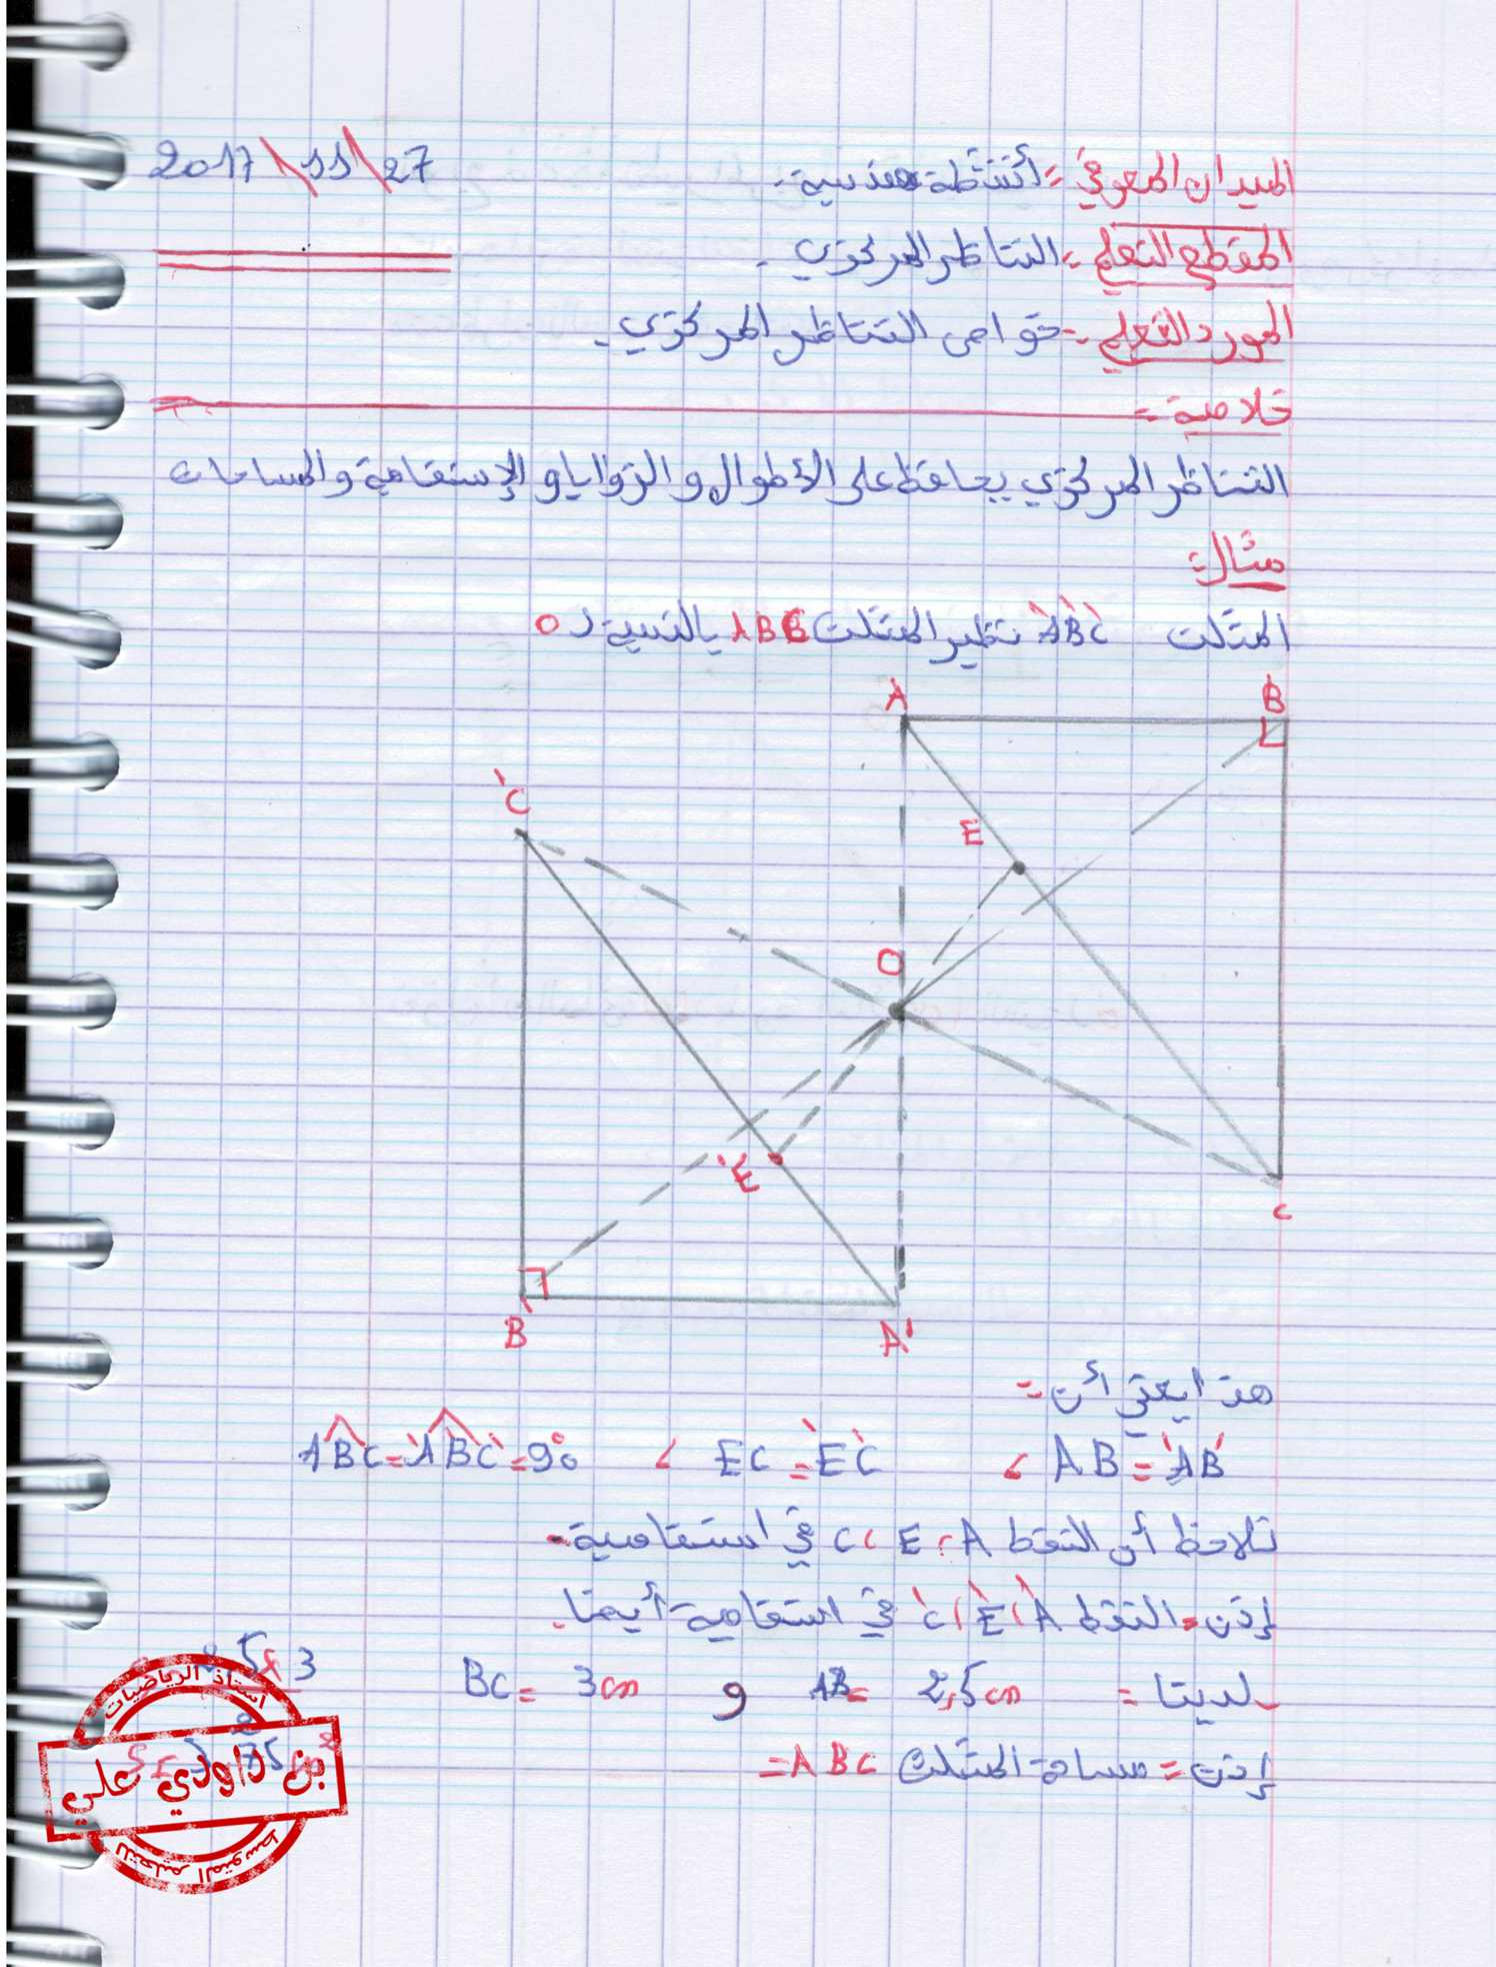 الميدان المعرفي = أنشطة هندسية. 2017\11\27
المقطع التعلمي = التناظر المركزي.
المورد التعلمي = خواص التناظر المركزي.
خلاصة =
التناظر المركزي يحافظ على الأطوال و الزوايا و الإستقامة و المساحات
مثال:
المثلث A'B'C' نظير المثلث ABC بالنسبة لـ O
A B
C'
E
O
E'
C
B' A'
هذا يعني أن =
AB = A'B' ، EC = E'C' ، ABC = A'B'C' = 90°
نلاحظ أن النقط A ، E ، C في استقامية.
إذن = النقط A' ، E' ، C' في استقامية أيضا.
لدينا = AB = 2,5cm و BC = 3cm
إذن = مساحة المثلث ABC =
استاذ الرياضيات
علي
للتعليم المتوسط